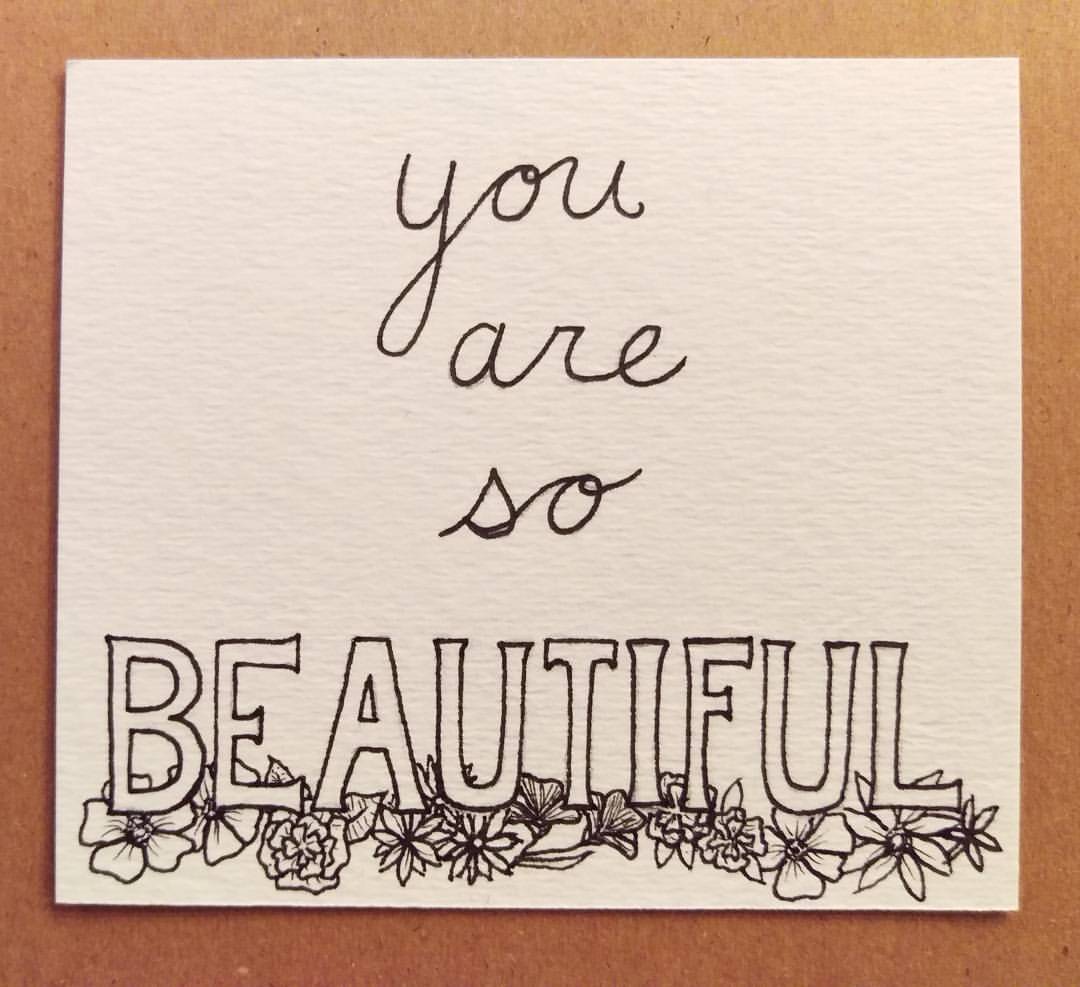 you
are
so
BEAUTIFUL